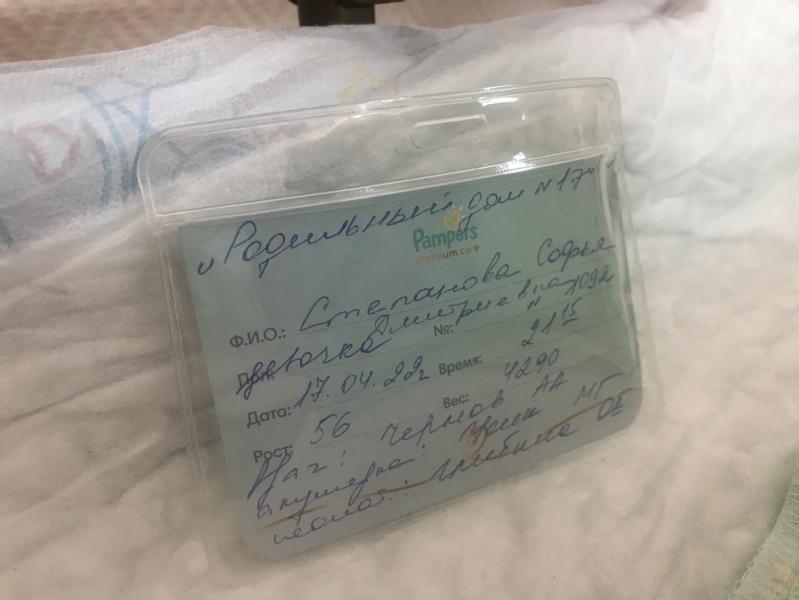 „Родильный дом N 17"
Pampers
premium care
Ф.И.О.: Степанова Софья
Дмитриевна
девочка №: N 1092
Дата: 17.04.22г Время: 21 15
Рост: 56 Вес: 4290
Чернов АА
акушерка: МГ
неонат.: Грибкина ОЕ